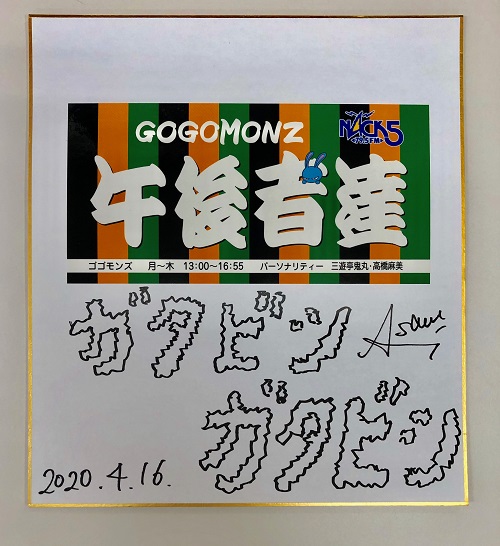 GOGOMONZ
NACK5
79.5FM
午後者達
ゴゴモンズ 月〜木 13:00〜16:55 パーソナリティー 三遊亭鬼丸・高橋麻美
ガタビン Asami
ガタビン
2020.4.16.